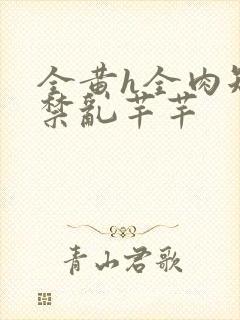 全黄h全肉短
禁亂芊芊
青山君歌